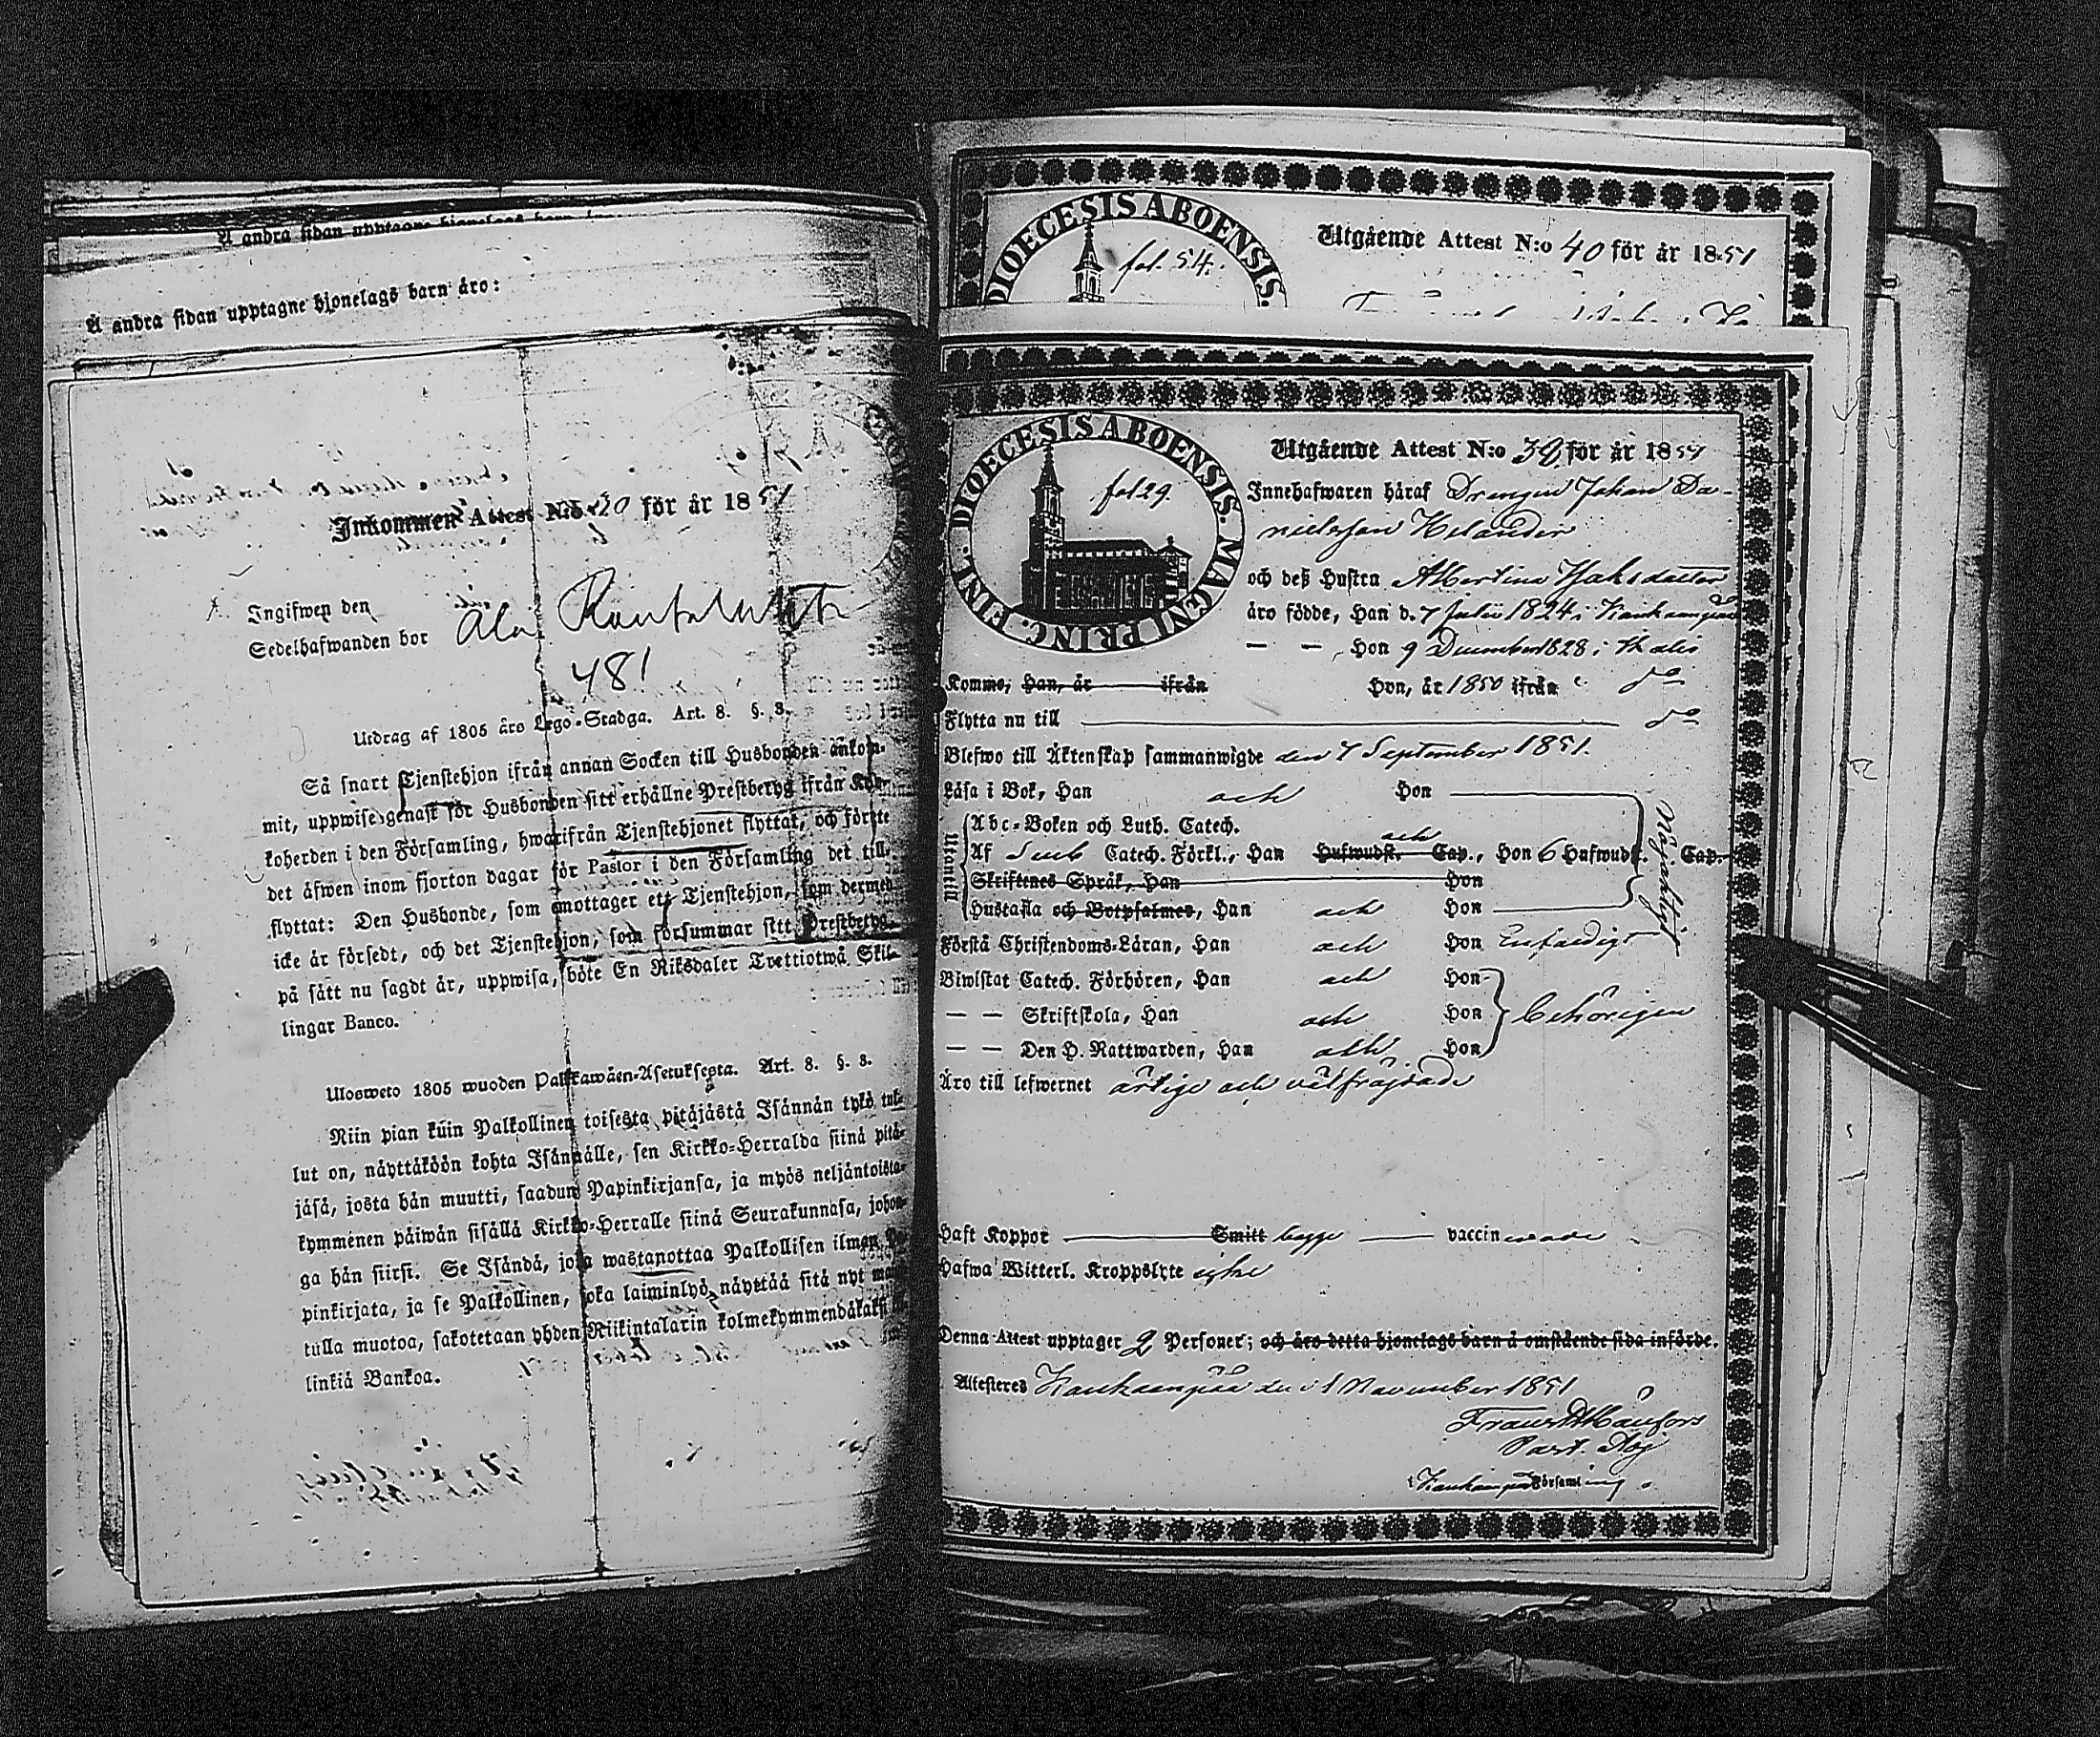 Å andra sidan upptagne hjonelags barn äro:
Inkommen Attest N:o 20 för år 1851
Ingifwen den
Sedelhafwanden bor Ala
481
Utdrag af 1805 års Lego-Stadga. Art. 8. §. 3.
Så snart Tjenstehjon ifrån annan Socken till Husbonden ankom-
mit, uppwise genast för Husbonden sitt erhållne Prestbetyg ifrån Kyr-
koherden i den Församling, hwarifrån Tjenstehjonet flyttat, och förete
det äfwen inom fjorton dagar för Pastor i den Församling det till-
flyttat: Den Husbonde, som emottager ett Tjenstehjon, som dermed
icke är försedt, och det Tjenstehjon, som försummar sitt Prestbetyg
på sätt nu sagdt är, uppwisa, böte En Riksdaler Trettiotwå Skil-
lingar Banco.
Ulosweto 1805 wuoden Palkkawäen-Asetuksesta. Art. 8. §. 3.
Niin pian kuin Palkollinen toisesta pitäjästä Isännän tykö tul-
lut on, näyttäköön kohta Isännälle, sen Kirkko-Herralda siinä pitä-
jäsä, josta hän muutti, saadun Papinkirjansa, ja myös neljäntoista-
kymmenen päiwän sisällä Kirkko-Herralle siinä Seurakunnasa, johon-
ga hän siirsi. Se Isändä, joka wastanottaa Palkollisen ilman Pa-
pinkirjata, ja se Palkollinen, joka laiminlyö näyttää sitä nyt mai-
tulla muotoa, sakotetaan yhden Riikintalarin kolmekymmendäkaksi
linkiä Bankoa.
DIOECESIS ABOENSIS.
fol. 54.
Utgående Attest N:o 40 för år 1851
DIOECESIS ABOENSIS. MAGNI PRINC. FINL.
fol 29.
Utgående Attest N:o 39 för år 1851
Innehafwaren häraf Drengen Johan Da-
nielsson Helander
och deß Hustru Albertina Isaksdotter
äro födde, Han d. 7 Julii 1824 i Kankaanpää
— — Hon 9 December 1828 i
Kommo, Han, år ifrån Hon, år 1850 ifrån do
Flytta nu till do
Blefwo till Äktenskap sammanwigde den 7 September 1851.
Läsa i Bok, Han och Hon
Utantill
Abc-Boken och Luth. Catech.
Af Catech. Förkl., Han och Hufwudst. Cap., Hon 6 Hufwudst. Cap.
Skriftenes Språk, Han Hon
Hustafla och Botpsalmer, Han och Hon
Nöjaktigt
Förstå Christendoms-Läran, Han och Hon Enfaldigt
Biwistat Catech. Förhören, Han och Hon
— — Skriftskola, Han och Hon behörigen
— — Den H. Nattwarden, Han och Hon
Äro till lefwernet ärlige och välfrägdade
Haft Koppor Smitt begge vaccinerade
Hafwa Witterl. Kroppslyte icke
Denna Attest upptager 2 Personer; och äro detta hjonelags barn å omstående sida införde.
Attesteras Kankaanpää den 1 November 1851
Past. Adj
i Kankaanpää Församling.